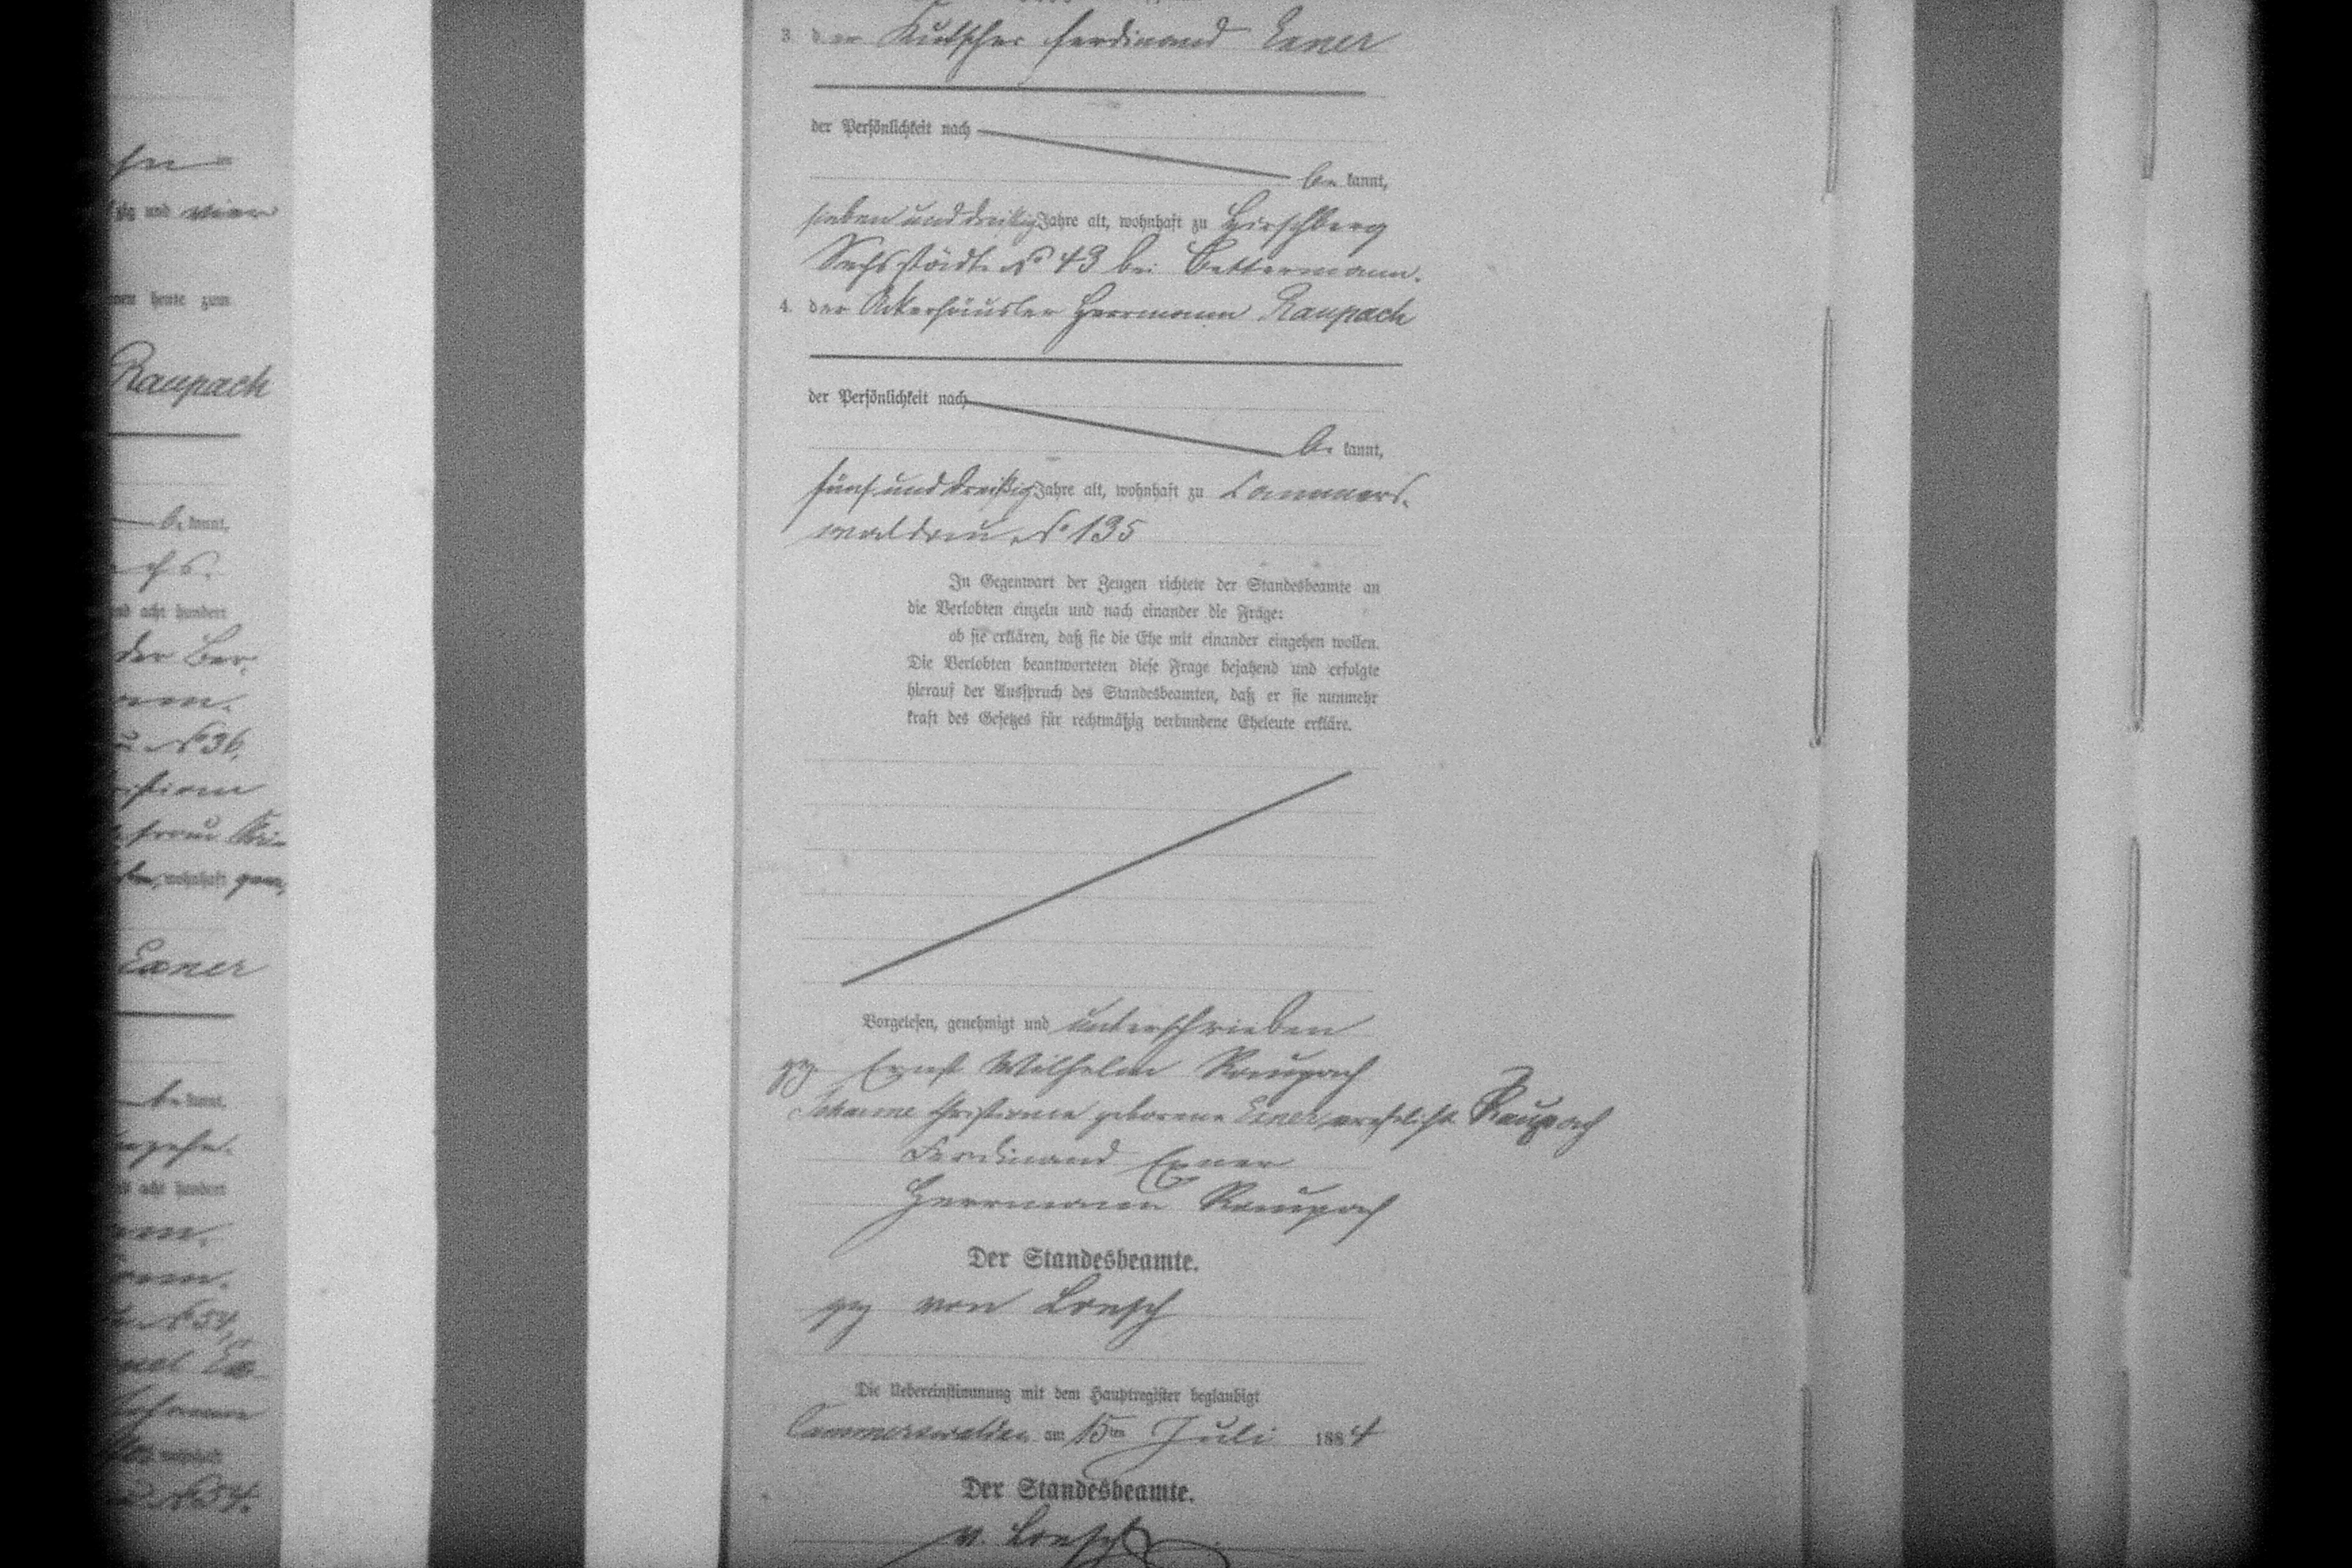 und vier
heute zum
Raupach
be kannt,
acht hundert
der Ber-
No 36.
frau
wohnhaft
Exner
be kannt.
acht hundert
No 54,
No 54.
3. der Kutscher Ferdinand Exner
der Persönlichkeit nach
be kannt,
sieben und dreißig Jahre alt, wohnhaft zu Hirschberg
Sechsstädte No 43 bei Bettermann.
4. der Ackerhäusler Herrmann Raupach
der Persönlichkeit nach
be kannt,
fünf und dreißig Jahre alt, wohnhaft zu Cammers-
waldau No 135
In Gegenwart der Zeugen richtete der Standesbeamte an
die Verlobten einzeln und nach einander die Frage:
ob sie erklären, daß sie die Ehe mit einander eingehen wollen.
Die Verlobten beantworteten diese Frage bejahend und erfolgte
hierauf der Ausspruch des Standesbeamten, daß er sie nunmehr
kraft des Gesetzes für rechtmäßig verbundene Eheleute erkläre.
Vorgelesen, genehmigt und unterschrieben
gz Ernst Wilhelm Raupach
Johanne Christiane geborene Exner verehelicht Raupach
Ferdinand Exner
Herrmann Raupach
Der Standesbeamte.
gz von Loesch
Die Uebereinstimmung mit dem Hauptregister beglaubigt
Cammerswaldau am 15ten Juli 1884
Der Standesbeamte.
v. Loesch